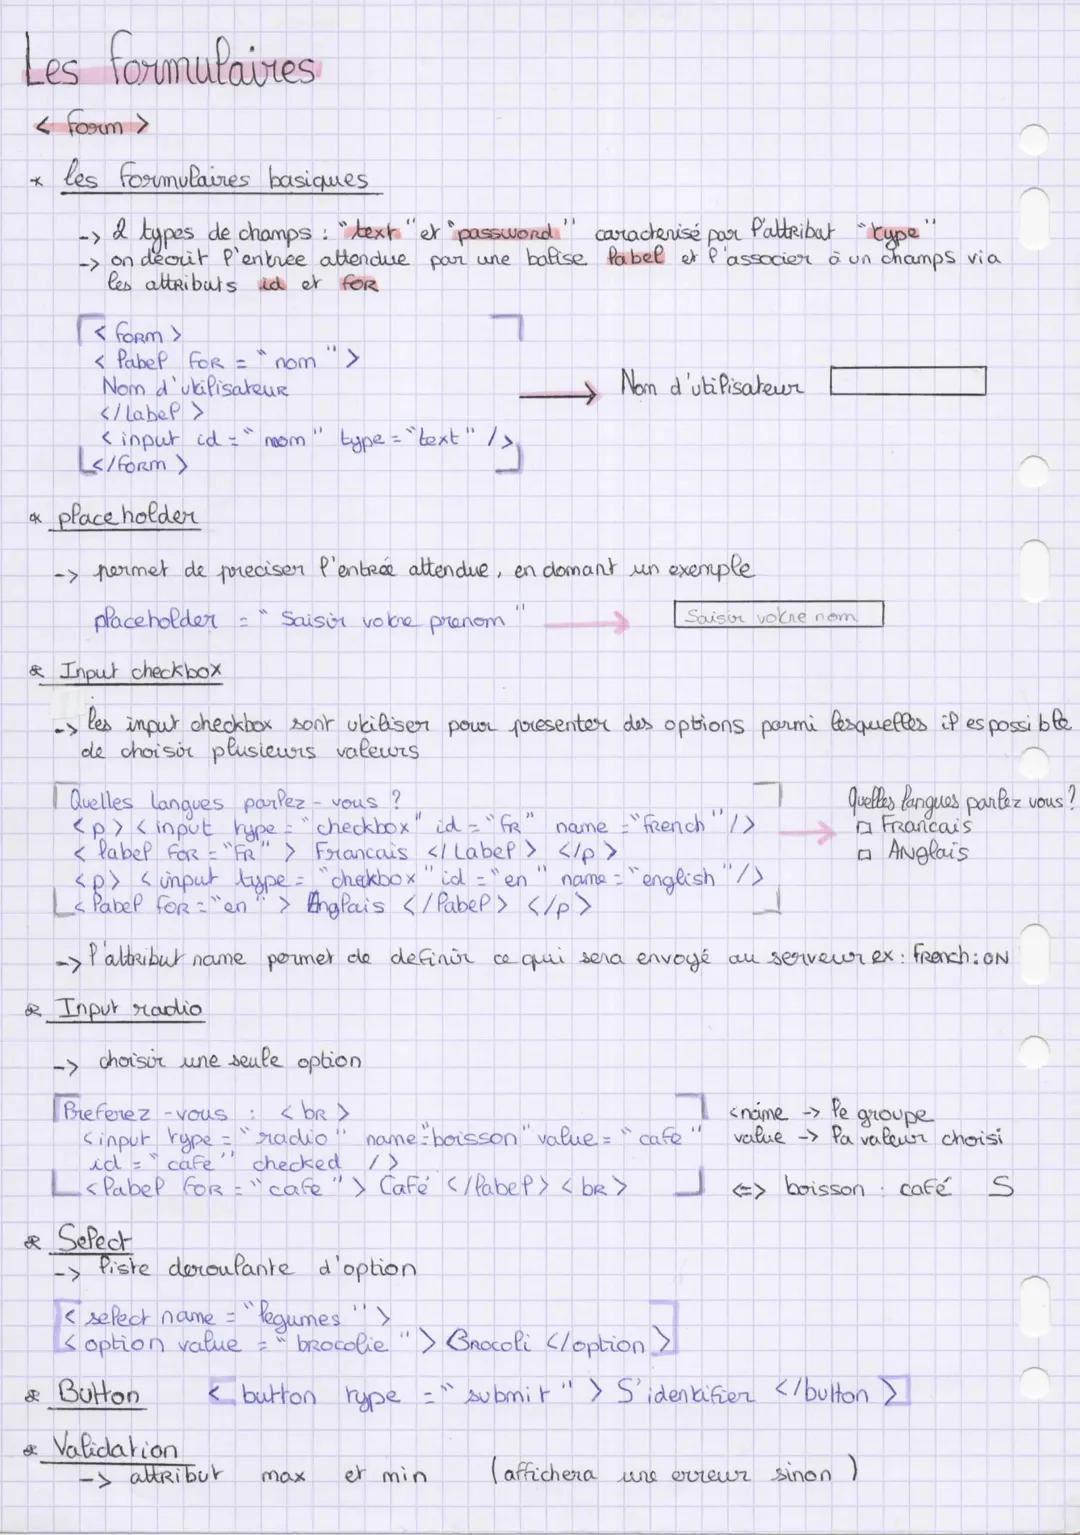 Les formulaires
< form >
* les formulaires basiques
-> 2 types de champs : "text" et "password" caracterisé par l'attribut "type"
-> on décrit l'entrée attendue par une balise label et l'associer à un champs via
les attributs id et for
< form >
< label for = "nom" >
Nom d'utilisateur
</label >
< input id = "nom" type = "text" />
</form >
Nom d'utilisateur
* placeholder
-> permet de preciser l'entrée attendue, en donnant un exemple
placeholder = "Saisir votre prenom"
Saisir votre nom
* Input checkbox
-> les input checkbox sont utiliser pour presenter des options parmi lesquelles il es possible
de choisir plusieurs valeurs
Quelles langues parlez-vous ?
<p> <input type = "checkbox" id = "FR" name = "french" />
< label for = "FR" > Francais </label > </p >
<p> <input type = "chekbox" id = "en" name = "english" />
< label for = "en" > Anglais </label > </p>
Quelles langues parlez vous ?
□ Francais
□ Anglais
-> l'attribut name permet de definir ce qui sera envoyé au serveur ex : french : ON
* Input radio
-> choisir une seule option
Preferez-vous : <br >
<input type = "radio" name = "boisson" value = "cafe"
id = "cafe" checked />
< label for = "cafe" > Café </label > < br >
<name -> le groupe
value -> la valeur choisi
<=> boisson : café S
* Select
-> liste deroulante d'option
< select name = "legumes" >
< option value = "brocolie" > Brocoli </option >
* Button < button type = "submit" > S'identifier </button >
* Validation
-> attribut max et min (affichera une erreur sinon )